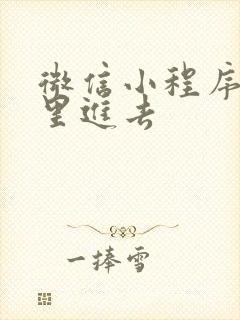 微信小程序
里進去
一捧雪